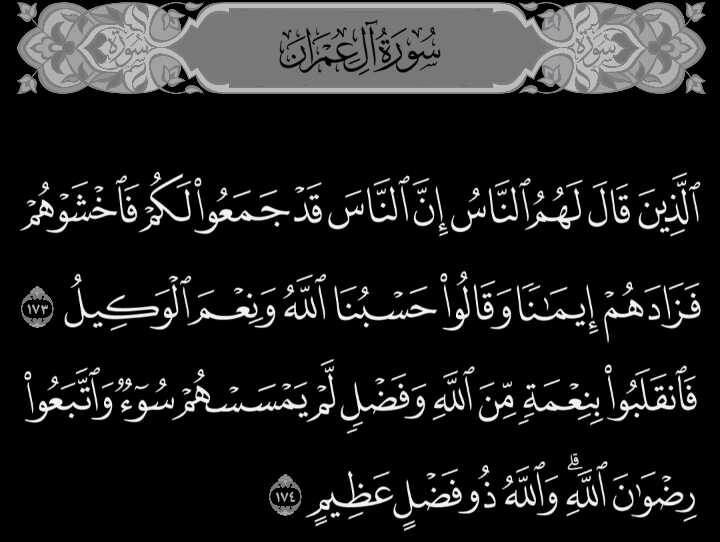 سُورَةُ آلِ عِمْرَان
سورة
سورة
ٱلَّذِينَ قَالَ لَهُمُ ٱلنَّاسُ إِنَّ ٱلنَّاسَ قَدْ جَمَعُوا۟ لَكُمْ فَٱخْشَوْهُمْ
فَزَادَهُمْ إِيمَـٰنًا وَقَالُوا۟ حَسْبُنَا ٱللَّهُ وَنِعْمَ ٱلْوَكِيلُ ١٧٣
فَٱنقَلَبُوا۟ بِنِعْمَةٍ مِّنَ ٱللَّهِ وَفَضْلٍ لَّمْ يَمْسَسْهُمْ سُوٓءٌ وَٱتَّبَعُوا۟
رِضْوَٰنَ ٱللَّهِ ۗ وَٱللَّهُ ذُو فَضْلٍ عَظِيمٍ ١٧٤